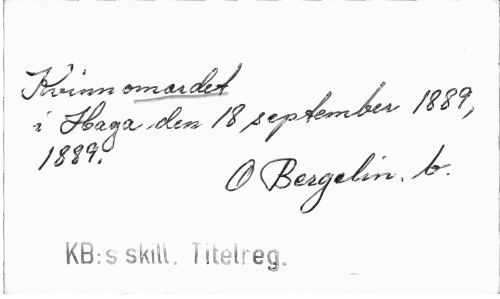 Kvinnomordet
i Haga den 18 september 1889,
1889.
O Bergelin. b.
KB:s skill. Titelreg.